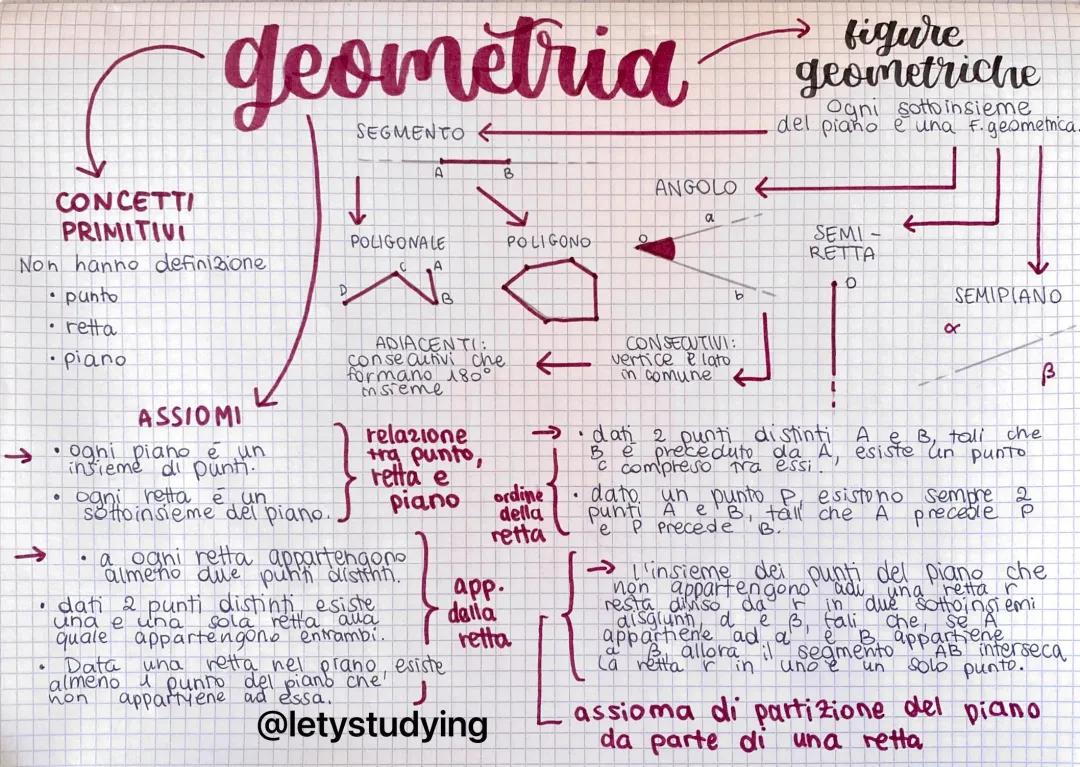 geometria
figure
geometriche
Ogni sottoinsieme
del piano è una F. geometrica.
SEGMENTO
A B
ANGOLO
a
O
b
SEMI-
RETTA
O
SEMIPIANO
α
β
POLIGONALE
D C A
B
POLIGONO
CONSECUTIVI:
vertice e lato
in comune
ADIACENTI:
consecutivi che
formano 180°
insieme
CONCETTI
PRIMITIVI
Non hanno definizione
• punto
• retta
• piano
ASSIOMI
→ • ogni piano é un
insieme di punti.
• ogni retta é un
sottoinsieme del piano.
relazione
tra punto,
retta e
piano
→ • a ogni retta appartengono
almeno due punti distinti.
• dati 2 punti distinti esiste
una e una sola retta alla
quale appartengono entrambi.
• Data una retta nel piano, esiste
almeno 1 punto del piano che
non appartyene ad essa.
app.
della
retta
→ • dati 2 punti distinti A e B, tali che
B è preceduto da A, esiste un punto
C compreso tra essi.
• dato un punto P, esistono sempre 2
punti A e B, tali che A precede P
e P precede B.
ordine
della
retta
→ L'insieme dei punti del piano che
non appartengono ad una retta r
resta diviso da r in due sottoinsiemi
disgiunti, α e β, tali che, se A
appartiene ad α e B appartiene
a β, allora il segmento AB interseca
la retta r in uno e un solo punto.
assioma di partizione del piano
da parte di una retta
@letystudying